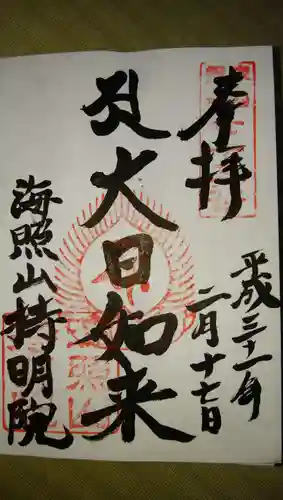 奉拝
平成三十一年
二月十七日
大日如来
海照山持明院